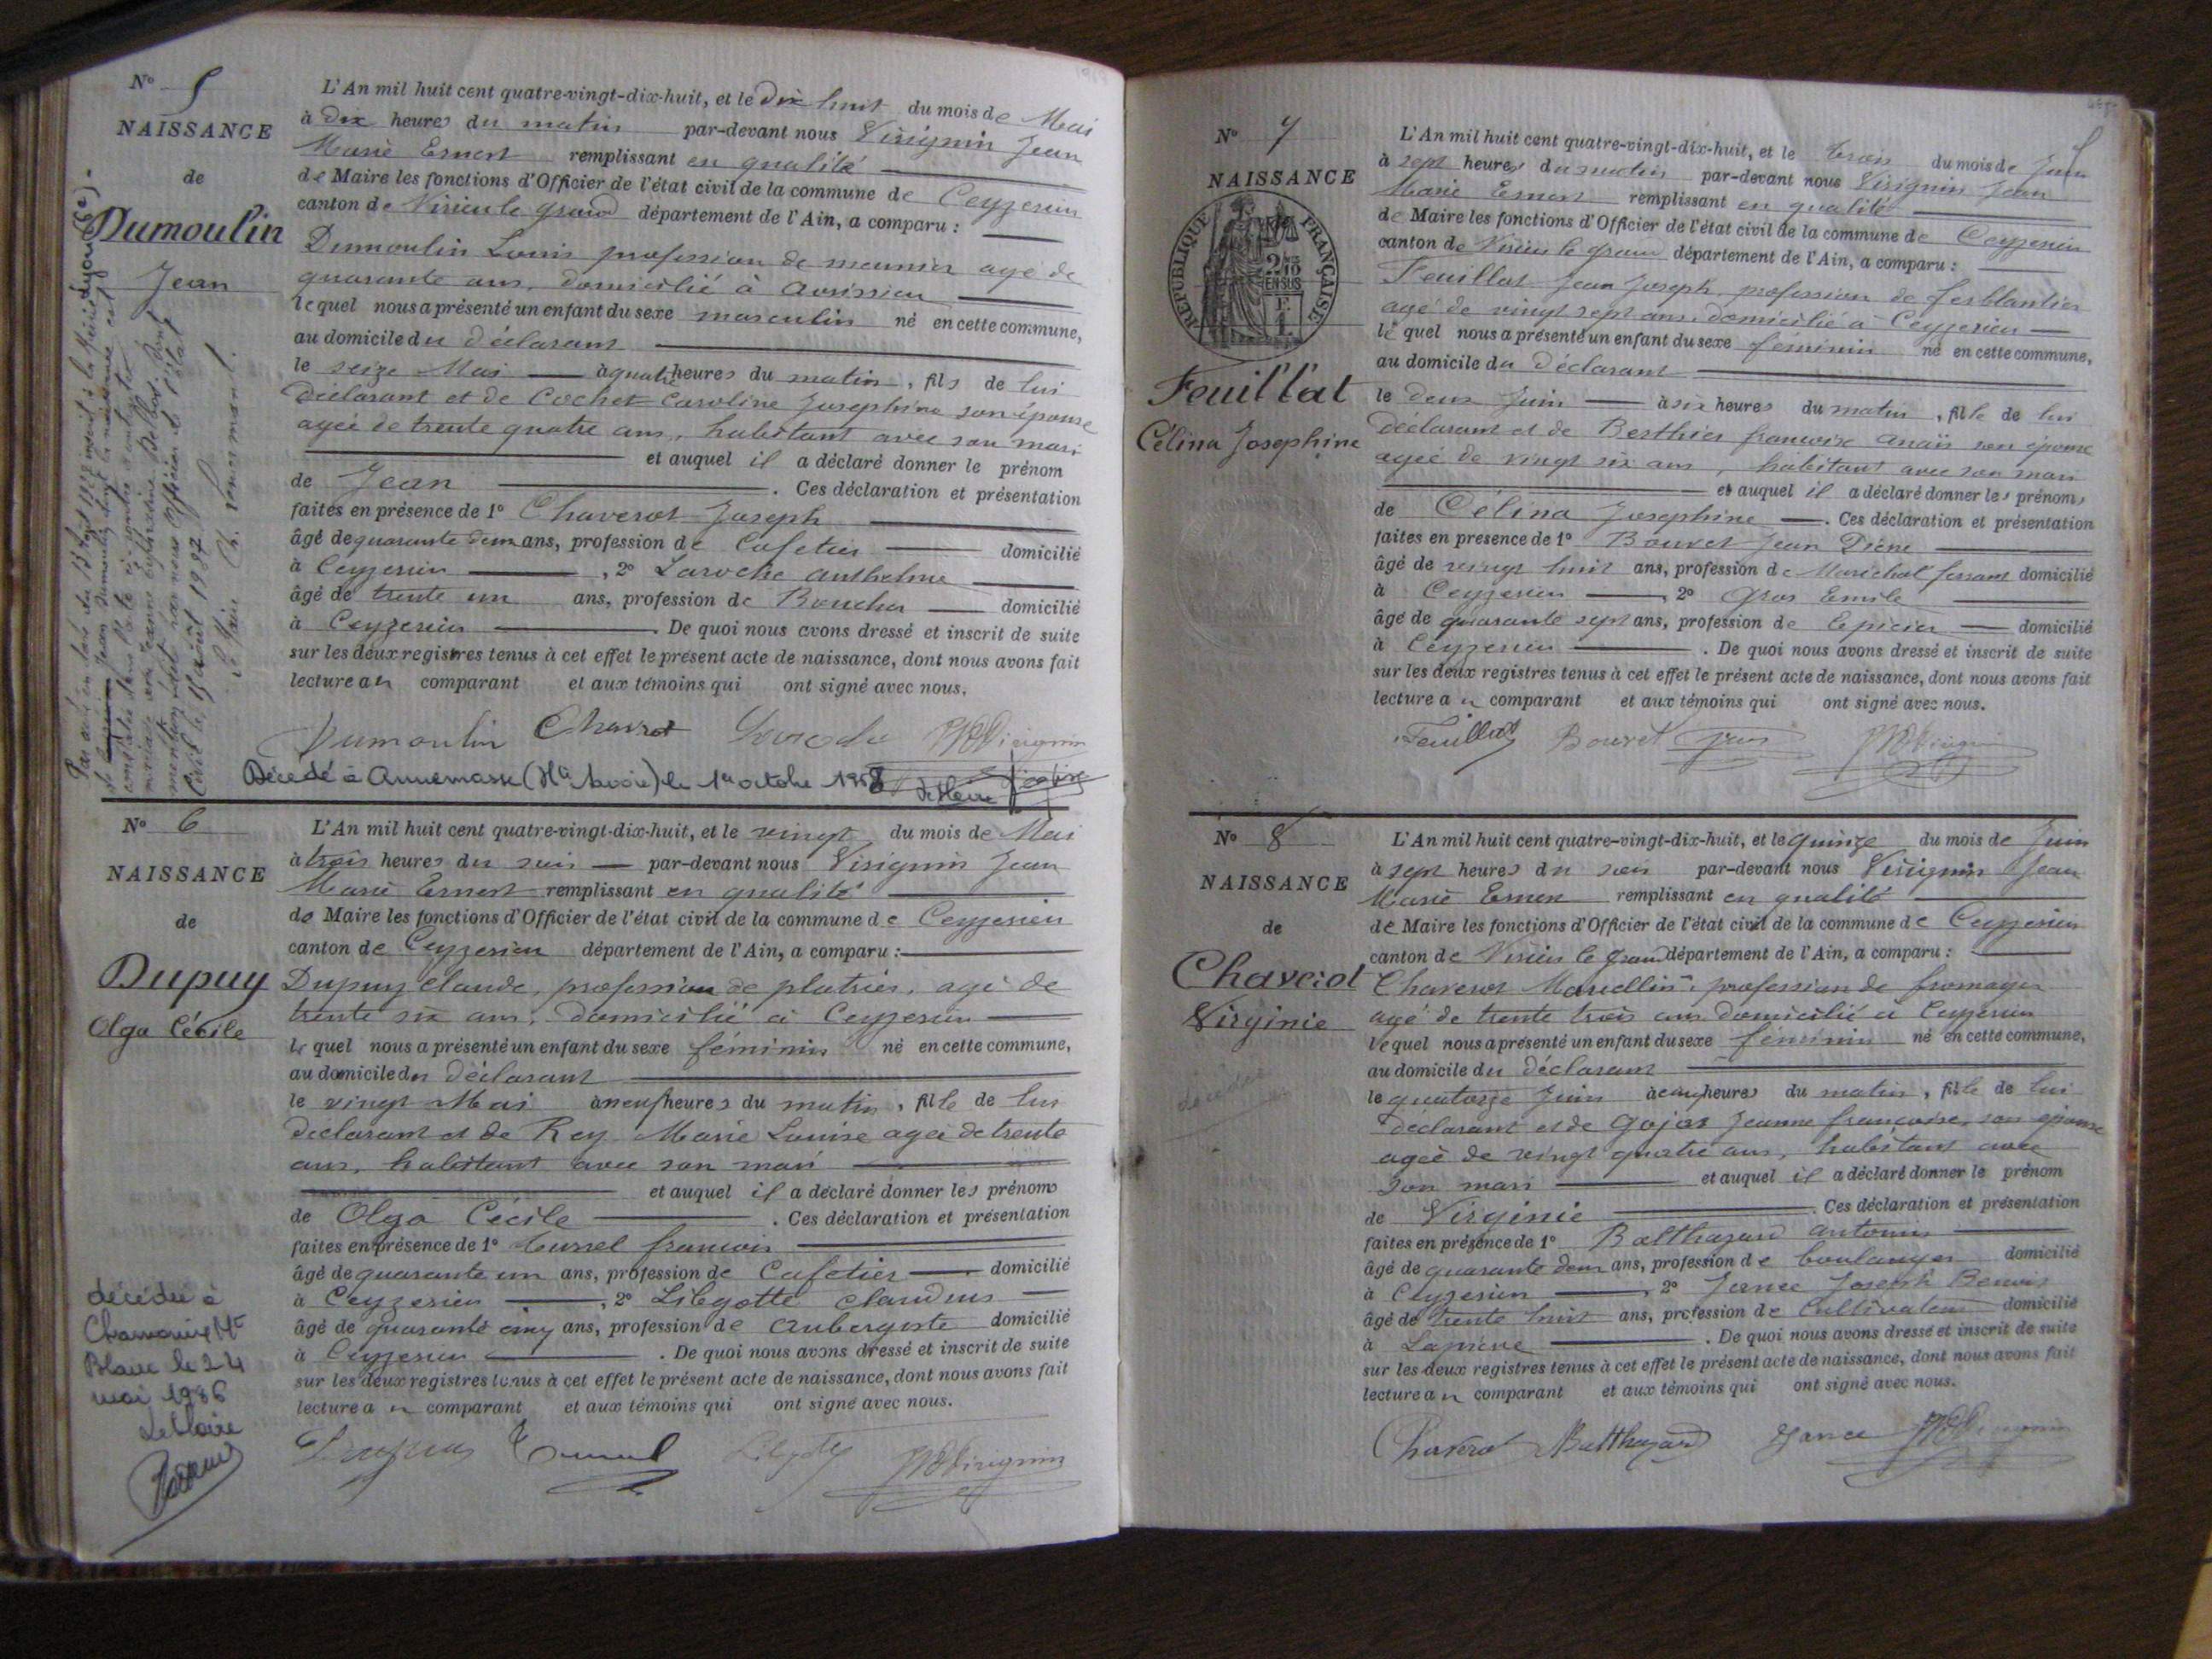 N° 5
NAISSANCE
de
Dumoulin
Jean
L'An mil huit cent quatre-vingt-dix-huit, et le Dix huit du mois de Mai
à Dix heures du matin par-devant nous Virignin Jean
Marie Ernest remplissant en qualité
de Maire les fonctions d'Officier de l'état civil de la commune de Ceyzerieu
canton de Virieu le grand département de l'Ain, a comparu :
Dumoulin Louis profession de meunier agé de
quarante ans, domicilié à Avrissieu
lequel nous a présenté un enfant du sexe masculin né en cette commune,
au domicile du déclarant
le seize Mai à quatre heures du matin, fils de lui
déclarant et de Cochet Caroline Josephine son épouse
agée de trente quatre ans, habitant avec son mari
et auquel il a déclaré donner le prénom
de Jean . Ces déclaration et présentation
faites en présence de 1° Chaverot Joseph
âgé de quarante deux ans, profession de Cafetier domicilié
à Ceyzerieu , 2° Laroche Anthelme
âgé de trente un ans, profession de Boucher domicilié
à Ceyzerieu . De quoi nous avons dressé et inscrit de suite
sur les deux registres tenus à cet effet le présent acte de naissance, dont nous avons fait
lecture au comparant et aux témoins qui ont signé avec nous.
Dumoulin Chaverot Laroche Virignin
Décédé à Annemasse (Hte Savoie) le 1er octobre 1958
Le Maire
N° 6
NAISSANCE
de
Dupuy
Olga Cécile
décédée à
Chamonix Mt
Blanc le 24
mai 1986
Le Maire
L'An mil huit cent quatre-vingt-dix-huit, et le vingt du mois de Mai
à trois heures du soir par-devant nous Virignin Jean
Marie Ernest remplissant en qualité
de Maire les fonctions d'Officier de l'état civil de la commune de Ceyzerieu
canton de Ceyzerieu département de l'Ain, a comparu :
Dupuy Claude, profession de platrier, agé de
trente six ans, domicilié à Ceyzerieu
lequel nous a présenté un enfant du sexe féminin né en cette commune,
au domicile du déclarant
le vingt Mai à neuf heures du matin, fille de lui
déclarant et de Rey Marie Louise agée de trente
ans, habitant avec son mari
et auquel il a déclaré donner les prénoms
de Olga Cécile . Ces déclaration et présentation
faites en présence de 1° François
âgé de quarante un ans, profession de Cafetier domicilié
à Ceyzerieu , 2° Libgotte Claudius
âgé de quarante cinq ans, profession de Aubergiste domicilié
à Ceyzerieu . De quoi nous avons dressé et inscrit de suite
sur les deux registres tenus à cet effet le présent acte de naissance, dont nous avons fait
lecture au comparant et aux témoins qui ont signé avec nous.
N° 7
NAISSANCE
RÉPUBLIQUE FRANÇAISE
2/10 EN SUS
Feuillat
Célina Josephine
L'An mil huit cent quatre-vingt-dix-huit, et le trois du mois de Juin
à sept heures du matin par-devant nous Virignin Jean
Marie Ernest remplissant en qualité
de Maire les fonctions d'Officier de l'état civil de la commune de Ceyzerieu
canton de Virieu le grand département de l'Ain, a comparu :
Feuillat Jean Joseph profession de ferblantier
agé de vingt sept ans domicilié à Ceyzerieu
lequel nous a présenté un enfant du sexe féminin né en cette commune,
au domicile du déclarant
le deux Juin à six heures du matin, fille de lui
déclarant et de Berthier Françoise Anaïs son épouse
agée de vingt six ans, habitant avec son mari
et auquel il a déclaré donner les prénoms
de Célina Josephine . Ces déclaration et présentation
faites en présence de 1° Bouvet Jean Pierre
âgé de vingt huit ans, profession de Maréchal ferrant domicilié
à Ceyzerieu , 2° Gros Emile
âgé de quarante sept ans, profession de Epicier domicilié
à Ceyzerieu . De quoi nous avons dressé et inscrit de suite
sur les deux registres tenus à cet effet le présent acte de naissance, dont nous avons fait
lecture au comparant et aux témoins qui ont signé avec nous.
Feuillat Bouvet Gros Virignin
N° 8
NAISSANCE
de
Chaverot
Virginie
décédée
L'An mil huit cent quatre-vingt-dix-huit, et le quinze du mois de Juin
à sept heures du soir par-devant nous Virignin Jean
Marie Ernest remplissant en qualité
de Maire les fonctions d'Officier de l'état civil de la commune de Ceyzerieu
canton de Virieu le grand département de l'Ain, a comparu :
Chaverot Marcellin profession de fromager
agé de trente trois ans domicilié à Ceyzerieu
lequel nous a présenté un enfant du sexe féminin né en cette commune,
au domicile du déclarant
le quatorze Juin à cinq heures du matin, fille de lui
déclarant et de Gojoz Jeanne Françoise, son épouse
agée de vingt quatre ans, habitant avec
son mari et auquel il a déclaré donner le prénom
de Virginie . Ces déclaration et présentation
faites en présence de 1° Balthazard Antonin
âgé de quarante deux ans, profession de boulanger domicilié
à Ceyzerieu , 2° Joseph Benoit
âgé de trente huit ans, profession de Cultivateur domicilié
à . De quoi nous avons dressé et inscrit de suite
sur les deux registres tenus à cet effet le présent acte de naissance, dont nous avons fait
lecture au comparant et aux témoins qui ont signé avec nous.
Chaverot Balthazard Virignin